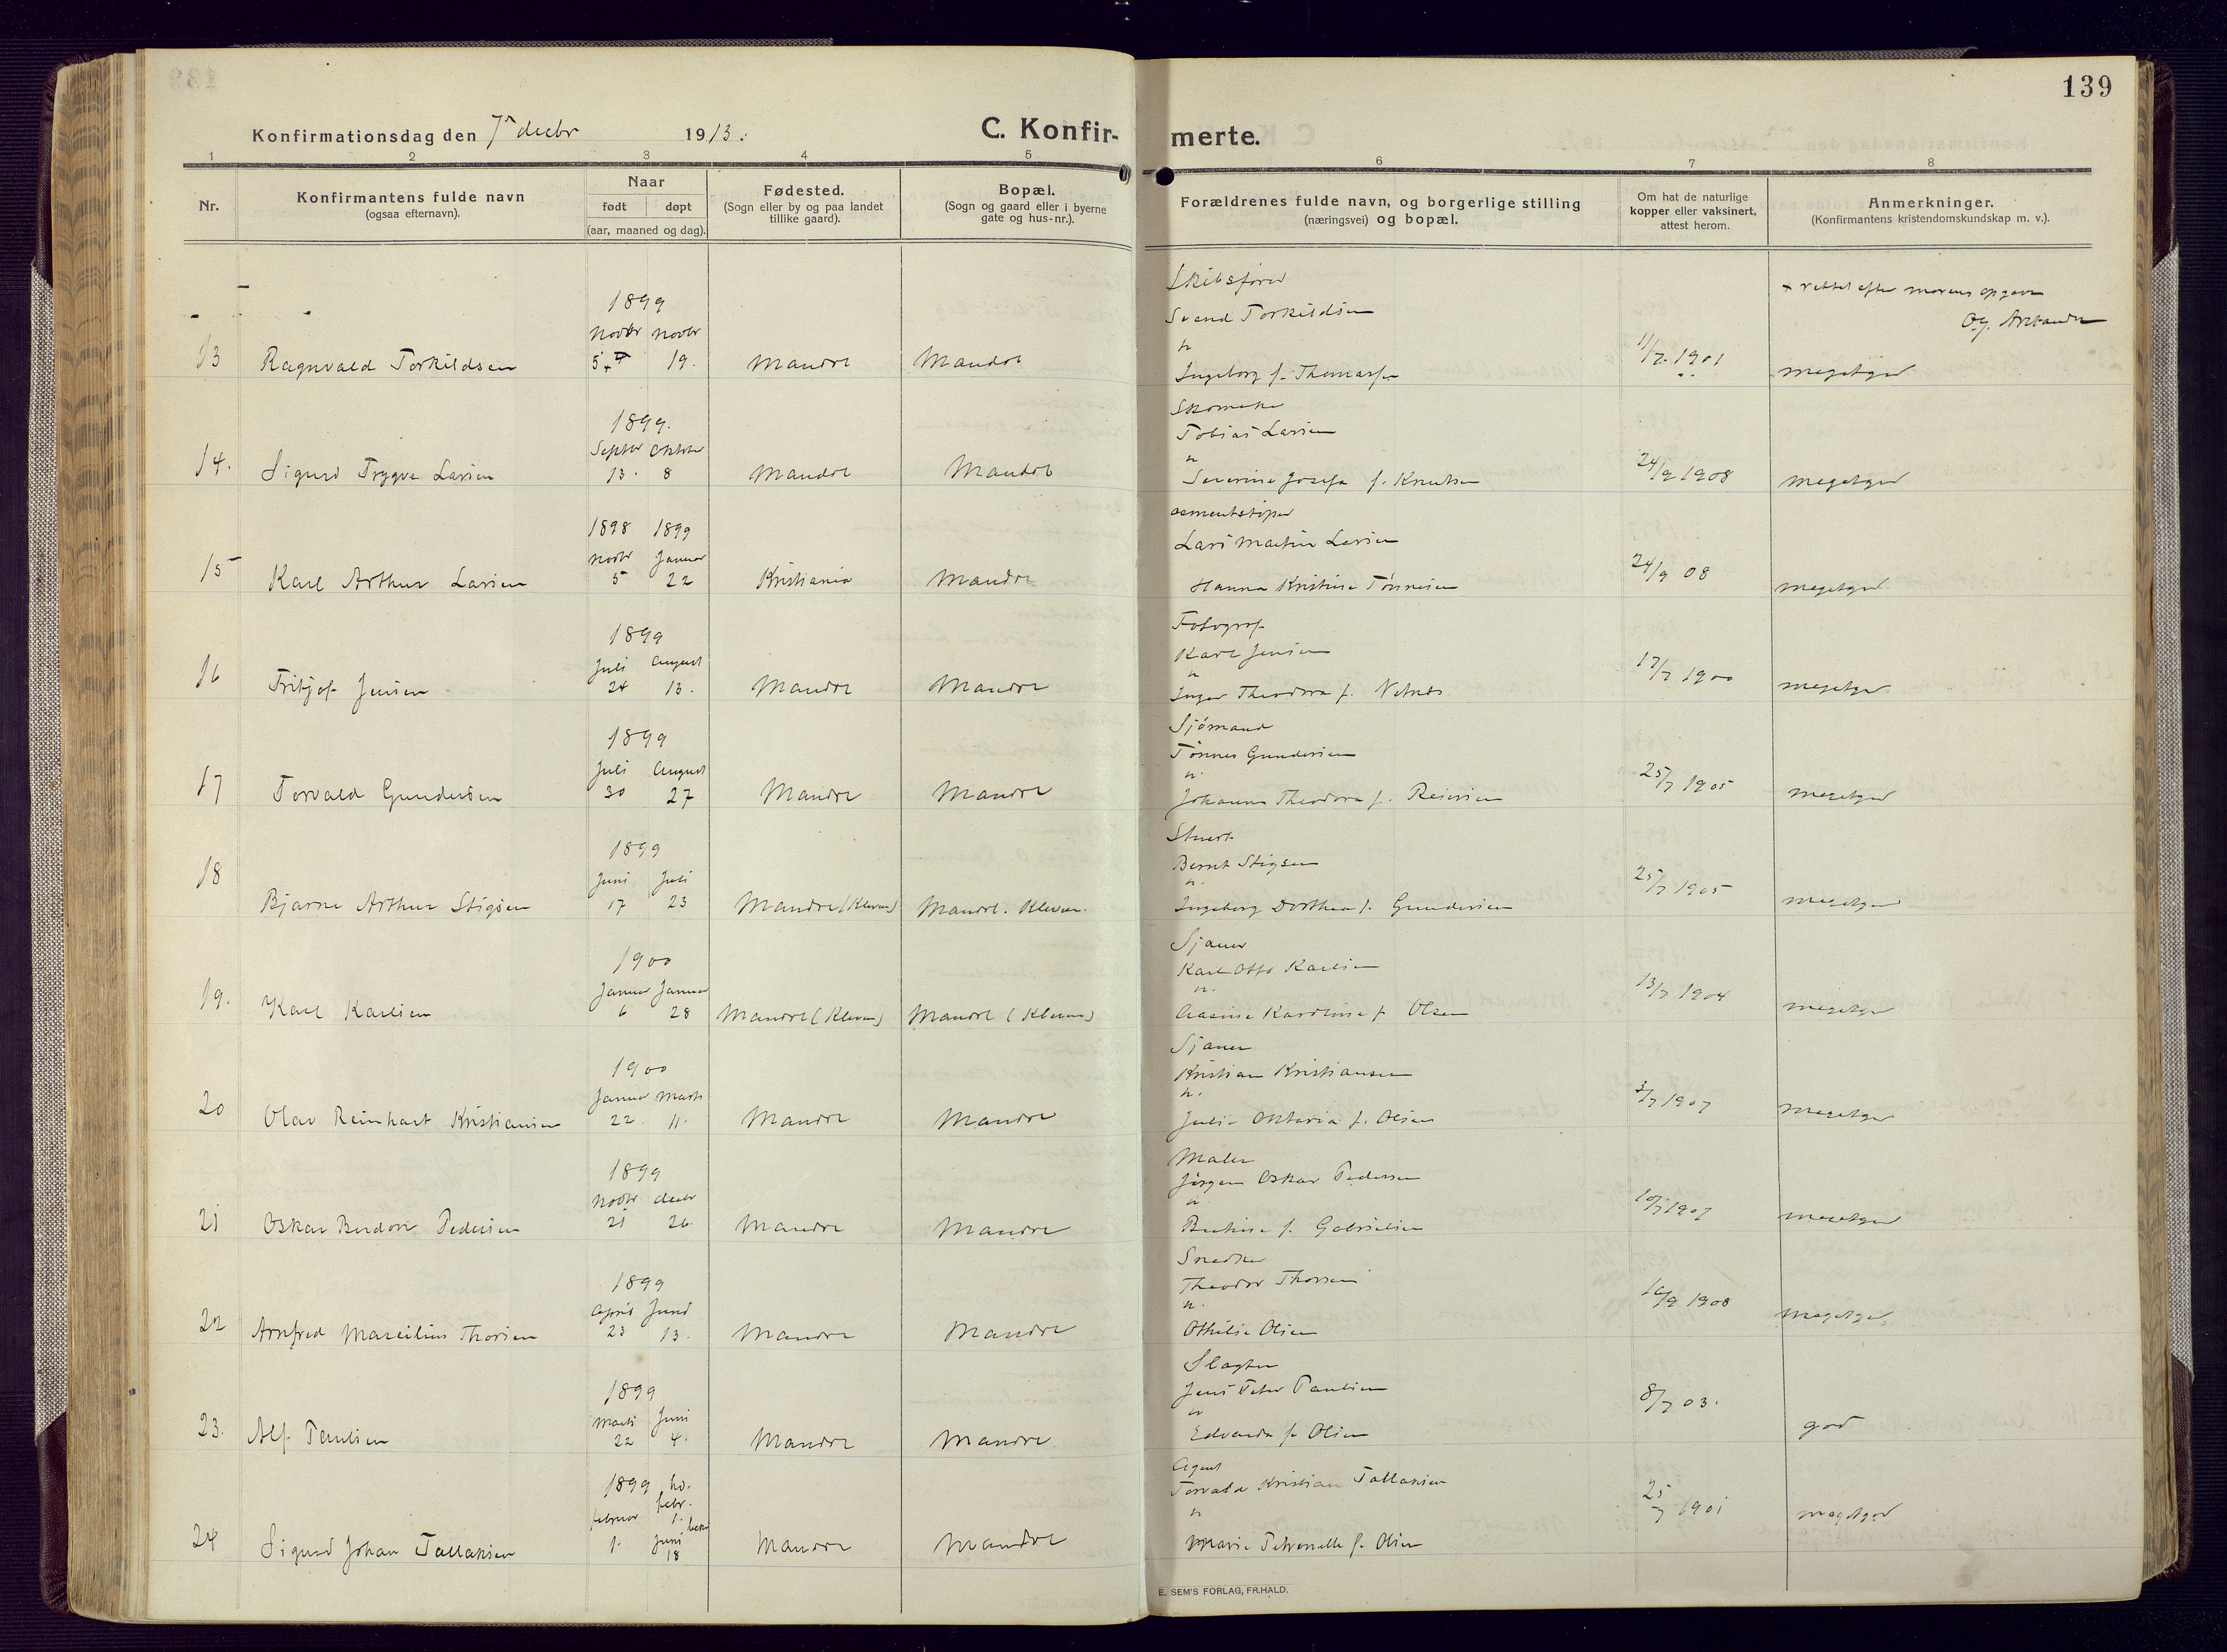 139
Konfirmationsdag den 7de decbr 1913.
C. Konfirmerte.
1 2 3 4 5 6 7 8
Nr.
Konfirmantens fulde navn
(ogsaa efternavn).
Naar
født døpt
(aar, maaned og dag).
Fødested.
(Sogn eller by og paa landet
tillike gaard).
Bopæl.
(Sogn og gaard eller i byerne
gate og hus-nr.).
Forældrenes fulde navn, og borgerlige stilling
(næringsvei) og bopæl.
Om hat de naturlige
kopper eller vaksinert,
attest herom.
Anmerkninger.
(Konfirmantens kristendomskundskap m. v.).
1899
Skibsfører
+ rettet efter morens opgave
Novbr Novbr
Svend Torkildsen
og
13 Ragnvald Torkildsen 5 19. Mandal Mandal Ingeborg f. Thomassen 11/7 1901 megetgod
1899.
Skomaker
Septbr Oktober
Tobias Larsen
og
14. Sigurd Trygve Larsen 13. 8 Mandal Mandal Severine Josefa f. Knutsen 24/9 1908 megetgod
1898 1899
cementstøper
Novbr Januar
Lars Martin Larsen
15 Karl Arthur Larsen 5 22 Kristiania Mandal Hanna Kristine Tønnesen 24/9 08 megetgod
1899
Fotograf
Juli August
Karl Jensen
og
16 Fritjof Jensen 24 13. Mandal Mandal Inger Theodora f. 17/7 1900 megetgod
1899
Sjømand
Juli August
Tønnes Gundersen
og
17 Torvald Gundersen 30 27 Mandal Mandal Johanne Theodora f. Reiersen 25/7 1905 megetgod
1899
Stuert
Juni Juli
Bernt Stigsen
og
18 Bjarne Arthur Stigsen 17 23 Mandal (Kleven) Mandal. Kleven. Ingeborg Dorthea f. Gundersen 25/7 1905 megetgod
1900
Sjauer
Januar Januar
Karl Otto Karlsen
og
19. Karl Karlsen 6 28 Mandal (Kleven) Mandal (Kleven) Aasine Karoline f. Olsen 13/7 1904 megetgod
1900
Sjauer
Januar Marts
Kristian Kristiansen
og
20 Olav Reinhart Kristiansen 22 11. Mandal Mandal Julie Oktavia f. Olsen 3/7 1907 megetgod
1899
Maler
Novbr decbr
Jørgen Oskar Pedersen
og
21 Oskar Pedersen 21 26. Mandal Mandal f. Gabrielsen 10/7 1907 megetgod
1899
Snedker
April
Theodor Thorsen
og
22 Arnfred Marcilius Thorsen 23 13. Mandal Mandal Othilie Olsen 1908 megetgod
1899
Slagter
Marts Juni
Jens Peter Paulsen
og
23. Alf Paulsen 22 4. Mandal Mandal Edvarda f. Olsen 8/7 03. god
1899 hd.
febr.
Agent
februar 1.
Torvald Kristian Tallaksen
og
24 Sigurd Johan Tallaksen 1. Juni 18 Mandal Mandal Marie Petronelle f. Olsen 25/7 1901 megetgod
E. SEM'S FORLAG, FR.HALD.